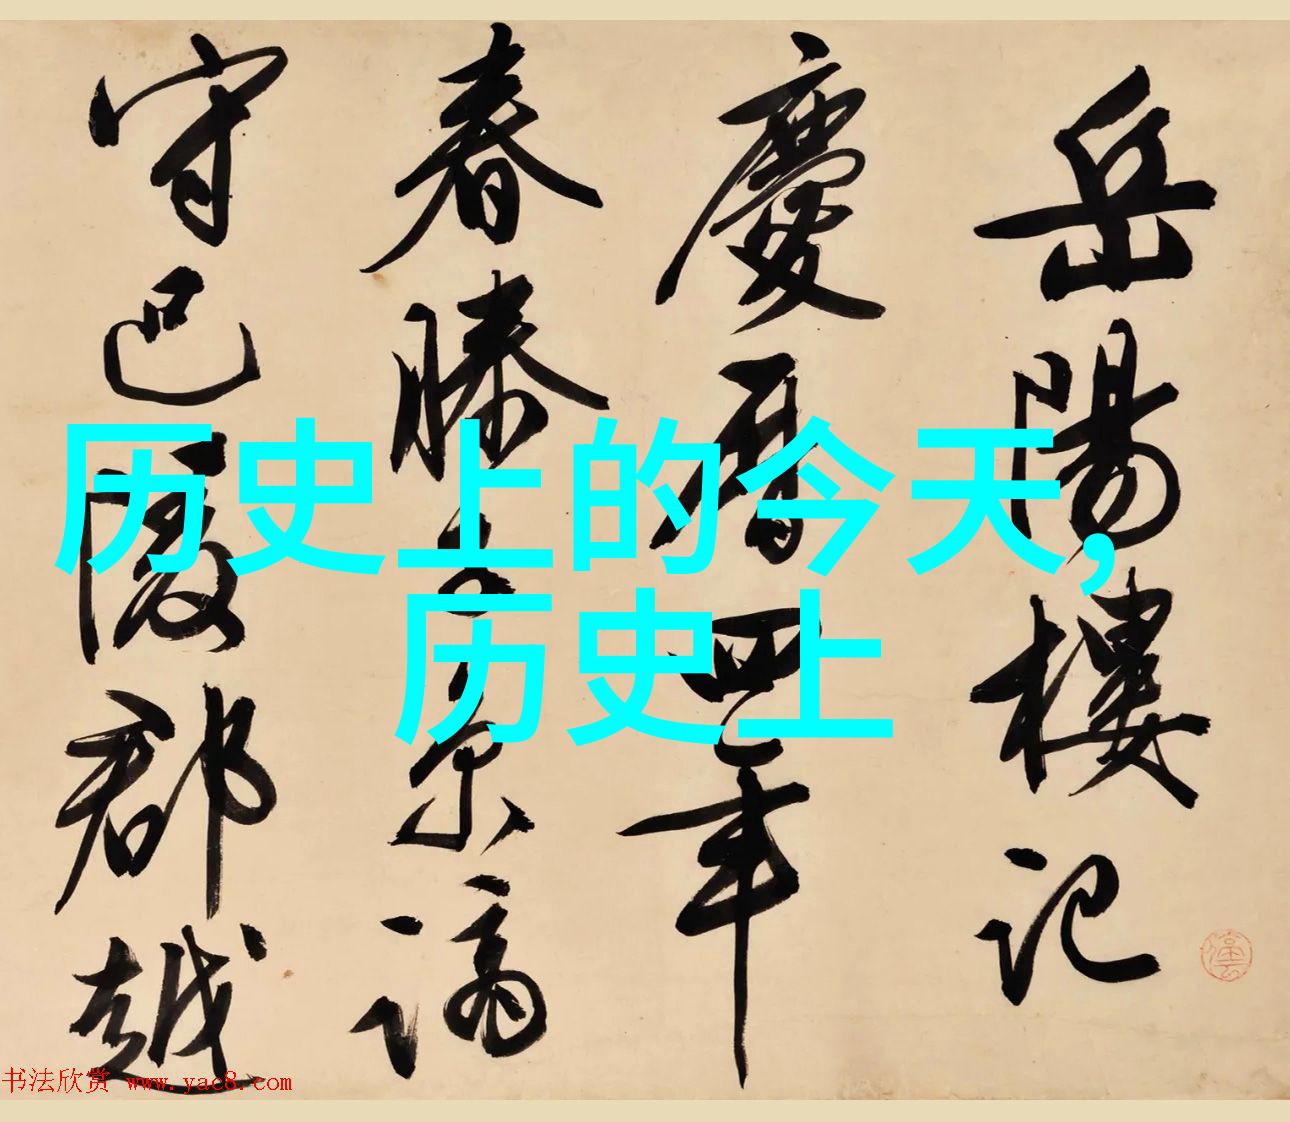 岳陽樓記
慶曆四年
春滕子京謫
守巴陵郡越
历史上的今天,
历史上
书法欣赏 www.yac8.com